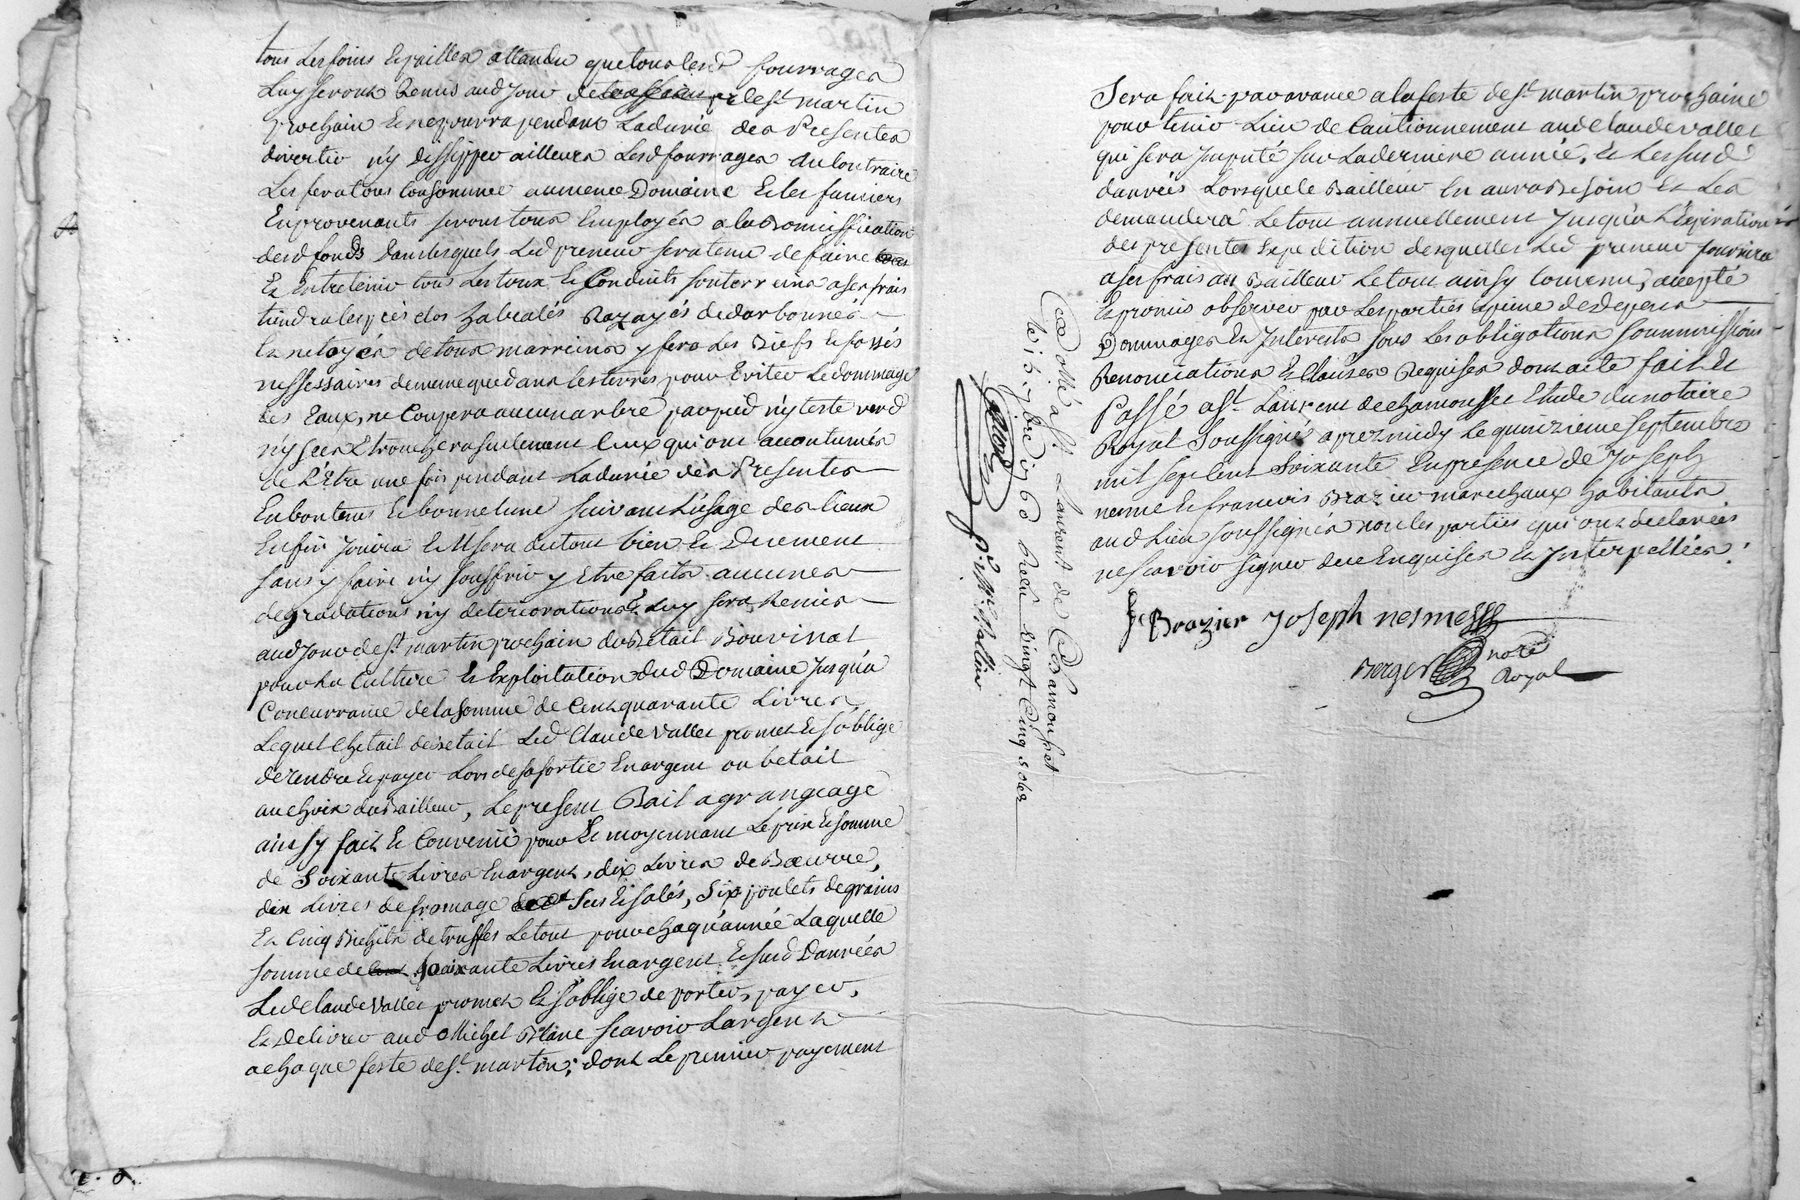 tous les foins et pailles attandu que tous lesd fourrages
luy seront Remis aud jour de st martin
prochain et ne pourra pendant la durée des Presentes
divertir n'y dissipper ailleurs lesd fourrages au contraire
les fera tous consommer au meme Domaine et les fumiers
en provenants seront tous employés a la Bonniffication
desd fonds dans lesquels led preneur sera tenu de faire
et entretenir tous les toux et conduits souterrains a ses frais
tiendra les prés clos Razayés de darbonnes
et netoyés de tous marreins y fera les Biefs et fossés
nessessaires de meme que dans les terres pour Eviter le dommage
des Eaux, ne coupera aucun arbre par pied n'y teste verd
n'y sec Etronchera seulement ceux qui ont accoutumés
de l'Etre une fois pendant la durée des Presentes
en bon tems et bonne lune suivant l'usage des lieux
enfin jouira et Usera du tout bien et Duement
sans y faire n'y souffrir y Etre faits aucunes
degradations n'y deteriorations, luy sera Remis
aud jour de st martin prochain du Betail Bouvinal
pour la Culture et Exploitation dud Domaine jusqu'a
Concurrance de la somme de Cent quarante Livres
lequel Chetail de betail led Claude Vallet promet et s'oblige
de rendre et payer lors de sa sortie en argent ou betail
au choix du Bailleur, le present Bail a grangeage
ainsy fait et Convenü pour et moyennant le prix et somme
de Soixante Livres en argent, dix Livres de Bœurre,
dix Livres de fromage secs et salés, six poulets de grains
et Cinq Bichets de truffes le tout pour chaqu'année Laquelle
somme de soixante Livres en argent et susd Danrées
led Claude Vallet promet et s'oblige de porter, payer,
et Delivrer aud Michel Blanc scavoir l'argent
a chaque feste de st martin, dont le premier payement
Sera fait par avance a la feste de st martin prochaine
pour tenir Lieu de Cautionnement aud Claude Vallet
qui sera imputé sur la derniere année, et les susd
danrées lorsque le Bailleur en aura Besoin et les
demandera le tout annuellement jusqu'a l'Expiration
des presentes expedition desquelles led preneur fournira
a ses frais au Bailleur le tout ainsy convenu, accepté
et promis observer par les parties a peine de depens
Dommages et Interests sous les obligations soummissions
Renonciations et Clauses Requises dont acte fait et
Passé a st Laurent de chamousset Etude du notaire
Royal Soussigné aprez midy le quinzieme septembre
mil sept cent soixante en presence de Joseph
nesme et francois Brazier marechaux habitants
aud Lieu soussignés non les parties qui ont declarées
ne scavoir signer de ce Enquises et Interpellées.
f Brazier Joseph nesme
Berger notre
Royal
Controllé a st Laurent de Chamousset
le 15 7bre 1760 Recu vingt Cinq sols